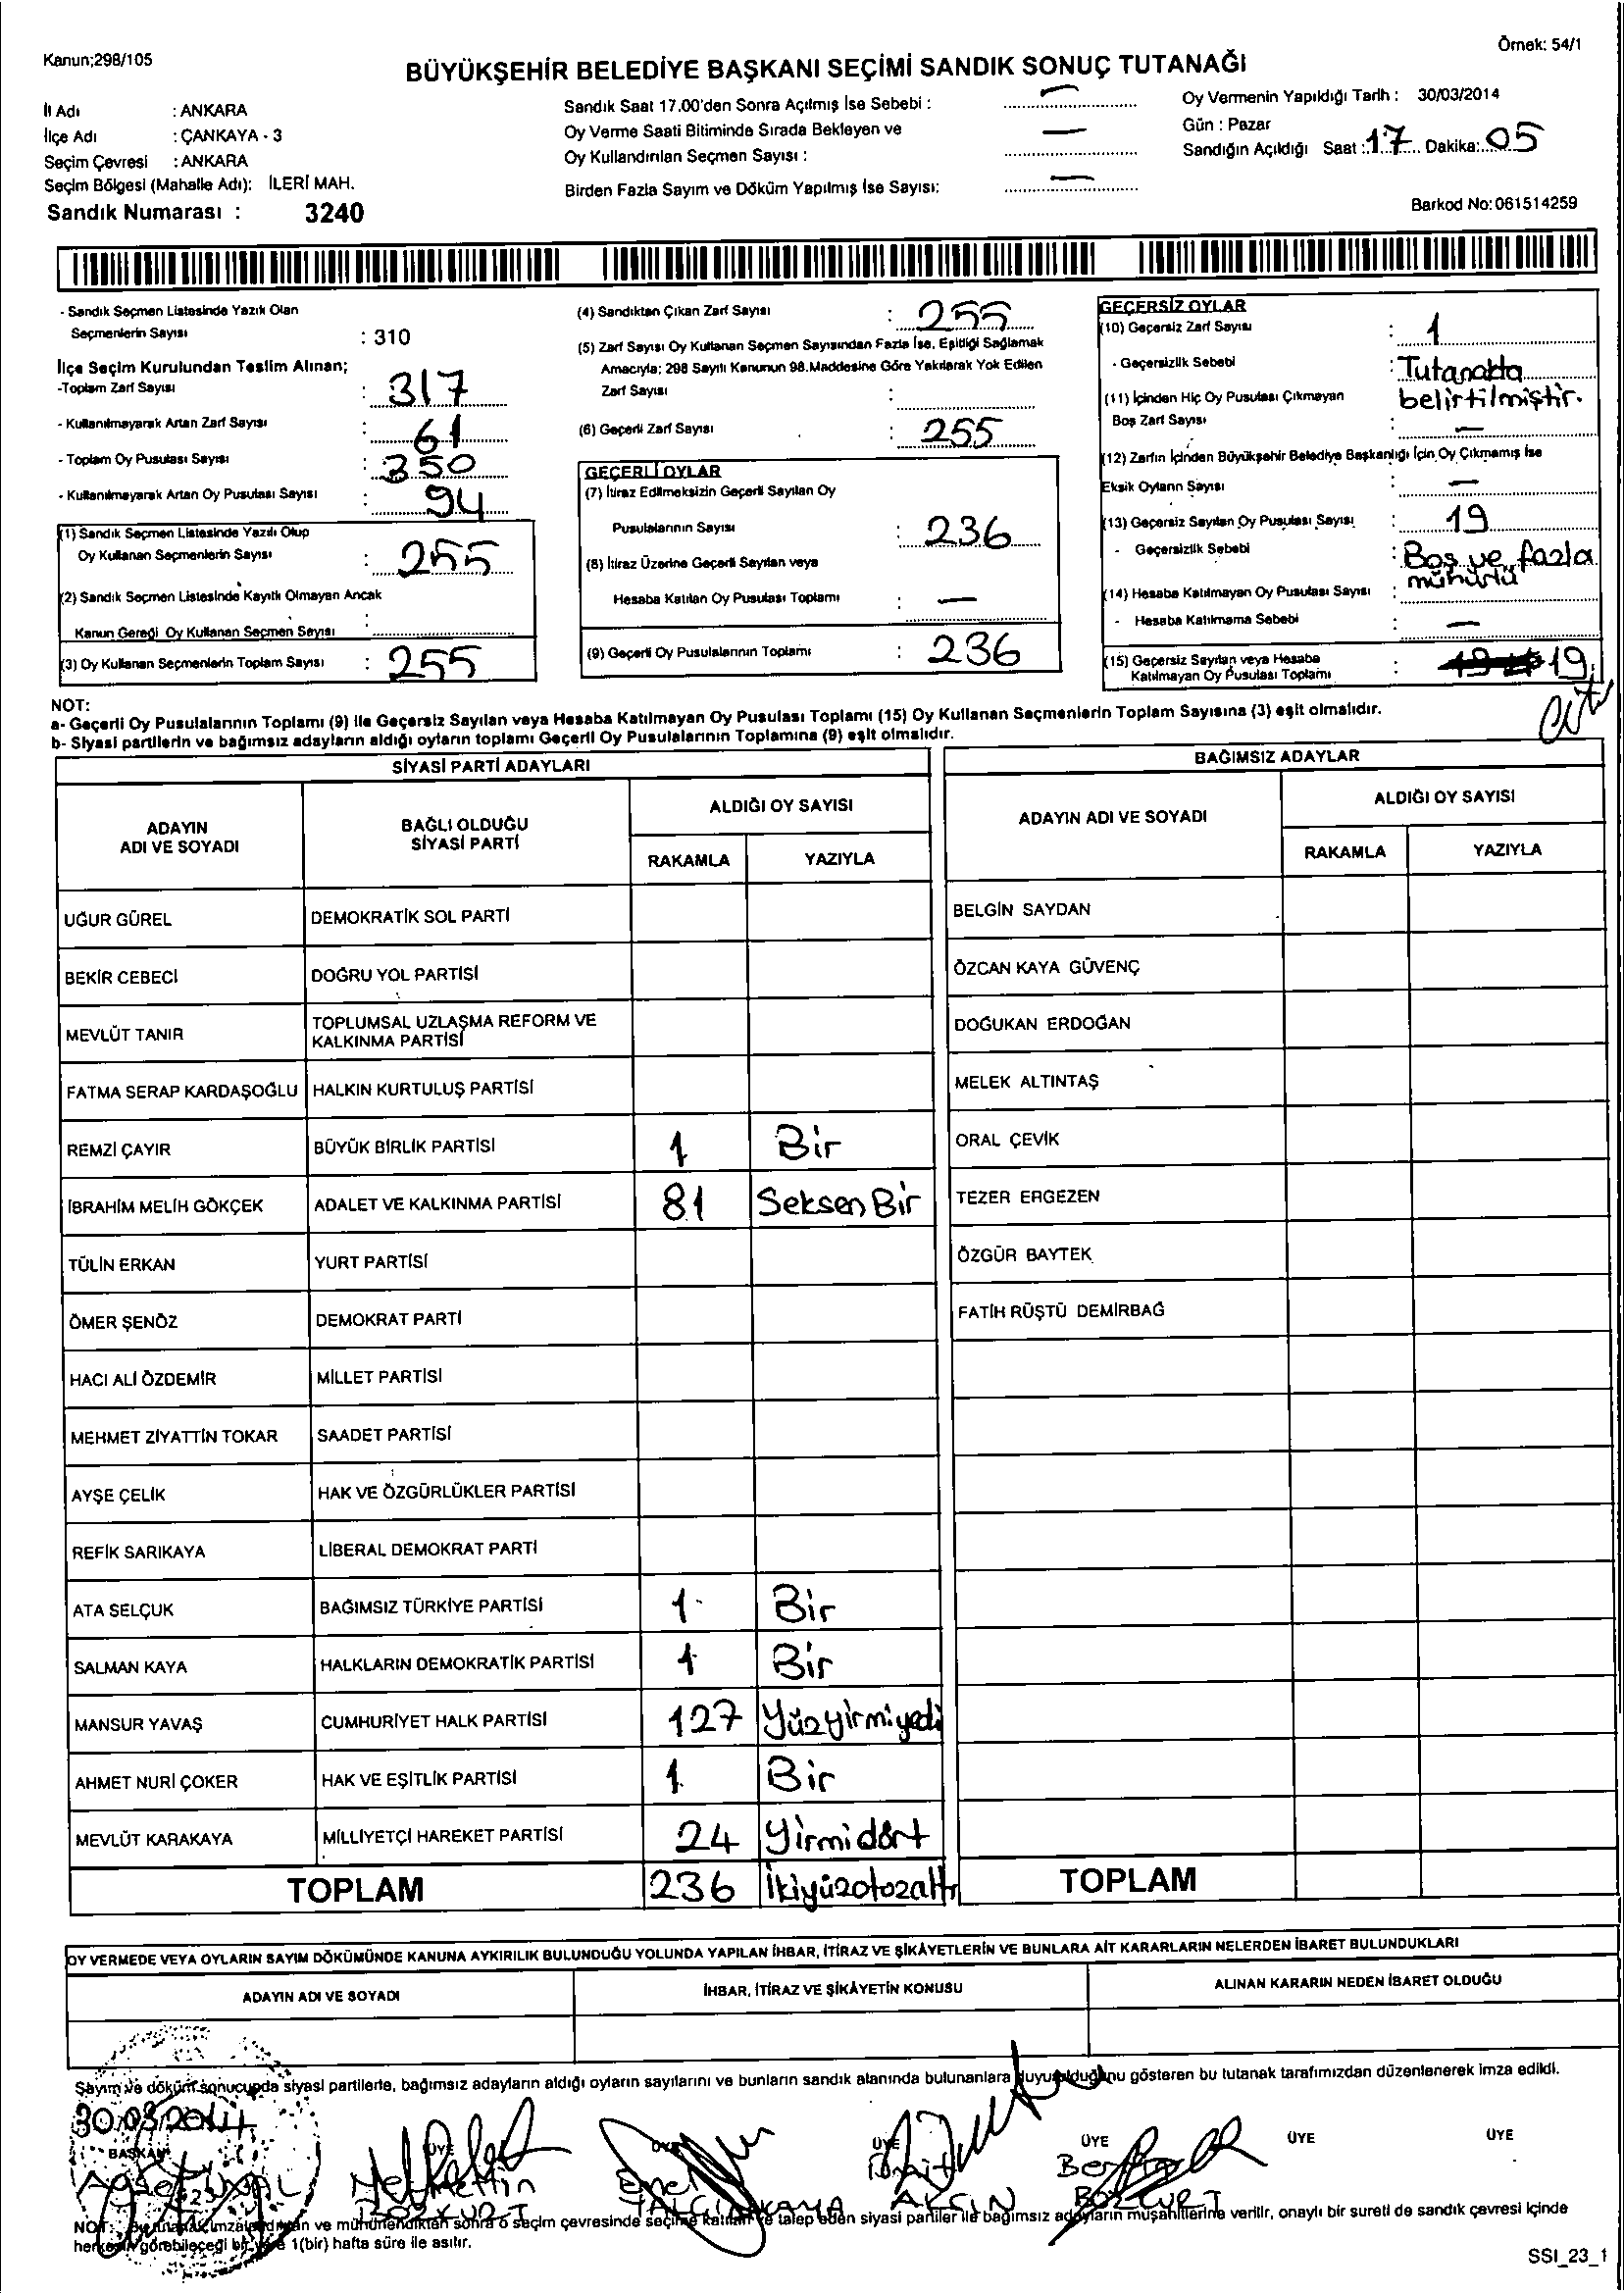 Kanun;298/105
Örnek: 54/1
BÜYÜKŞEHİR BELEDİYE BAŞKANI SEÇİMİ SANDIK SONUÇ TUTANAĞI
İl Adı : ANKARA
İlçe Adı : ÇANKAYA - 3
Seçim Çevresi : ANKARA
Seçim Bölgesi (Mahalle Adı): İLERİ MAH.
Sandık Numarası : 3240
Sandık Saat 17.00'den Sonra Açılmış İse Sebebi : —
Oy Verme Saati Bitiminde Sırada Bekleyen ve
Oy Kullandırılan Seçmen Sayısı : —
Birden Fazla Sayım ve Döküm Yapılmış İse Sayısı: —
Oy Vermenin Yapıldığı Tarih : 30/03/2014
Gün : Pazar
Sandığın Açıldığı Saat : 17 Dakika: 05
Barkod No:061514259
- Sandık Seçmen Listesinde Yazılı Olan
Seçmenlerin Sayısı : 310
İlçe Seçim Kurulundan Teslim Alınan;
-Toplam Zarf Sayısı : 317
- Kullanılmayarak Artan Zarf Sayısı : 61
- Toplam Oy Pusulası Sayısı : 350
- Kullanılmayarak Artan Oy Pusulası Sayısı : 94
(1) Sandık Seçmen Listesinde Yazılı Olup
Oy Kullanan Seçmenlerin Sayısı : 255
(2) Sandık Seçmen Listesinde Kayıtlı Olmayan Ancak
Kanun Gereği Oy Kullanan Seçmen Sayısı :
(3) Oy Kullanan Seçmenlerin Toplam Sayısı : 255
(4) Sandıktan Çıkan Zarf Sayısı : 255
(5) Zarf Sayısı Oy Kullanan Seçmen Sayısından Fazla İse, Eşitliği Sağlamak
Amacıyla; 298 Sayılı Kanunun 98.Maddesine Göre Yakılarak Yok Edilen
Zarf Sayısı :
(6) Geçerli Zarf Sayısı : 255
GEÇERLİ OYLAR
(7) İtiraz Edilmeksizin Geçerli Sayılan Oy
Pusulalarının Sayısı : 236
(8) İtiraz Üzerine Geçerli Sayılan veya
Hesaba Katılan Oy Pusulası Toplamı : —
(9) Geçerli Oy Pusulalarının Toplamı : 236
GEÇERSİZ OYLAR
(10) Geçersiz Zarf Sayısı : 1
- Geçersizlik Sebebi : Tutanakta
belirtilmiştir.
(11) İçinden Hiç Oy Pusulası Çıkmayan
Boş Zarf Sayısı : —
(12) Zarfın İçinden Büyükşehir Belediye Başkanlığı İçin Oy Çıkmamış İse
Eksik Oyların Sayısı : —
(13) Geçersiz Sayılan Oy Pusulası Sayısı : 19
- Geçersizlik Sebebi : Boş ve fazla
mühürlü
(14) Hesaba Katılmayan Oy Pusulası Sayısı :
- Hesaba Katılmama Sebebi : —
(15) Geçersiz Sayılan veya Hesaba
Katılmayan Oy Pusulası Toplamı : 19
NOT:
a- Geçerli Oy Pusulalarının Toplamı (9) ile Geçersiz Sayılan veya Hesaba Katılmayan Oy Pusulası Toplamı (15) Oy Kullanan Seçmenlerin Toplam Sayısına (3) eşit olmalıdır.
b- Siyasi partilerin ve bağımsız adayların aldığı oyların toplamı Geçerli Oy Pusulalarının Toplamına (9) eşit olmalıdır.
SİYASİ PARTİ ADAYLARI
ADAYIN ADI VE SOYADI
BAĞLI OLDUĞU SİYASİ PARTİ
ALDIĞI OY SAYISI
RAKAMLA YAZIYLA
UĞUR GÜREL DEMOKRATİK SOL PARTİ
BEKİR CEBECİ DOĞRU YOL PARTİSİ
MEVLÜT TANIR TOPLUMSAL UZLAŞMA REFORM VE KALKINMA PARTİSİ
FATMA SERAP KARDAŞOĞLU HALKIN KURTULUŞ PARTİSİ
REMZİ ÇAYIR BÜYÜK BİRLİK PARTİSİ 1 Bir
İBRAHİM MELİH GÖKÇEK ADALET VE KALKINMA PARTİSİ 81 Seksen Bir
TÜLİN ERKAN YURT PARTİSİ
ÖMER ŞENÖZ DEMOKRAT PARTİ
HACI ALİ ÖZDEMİR MİLLET PARTİSİ
MEHMET ZİYATTİN TOKAR SAADET PARTİSİ
AYŞE ÇELİK HAK VE ÖZGÜRLÜKLER PARTİSİ
REFİK SARIKAYA LİBERAL DEMOKRAT PARTİ
ATA SELÇUK BAĞIMSIZ TÜRKİYE PARTİSİ 1 Bir
SALMAN KAYA HALKLARIN DEMOKRATİK PARTİSİ 1 Bir
MANSUR YAVAŞ CUMHURİYET HALK PARTİSİ 127 Yüzyirmiyedi
AHMET NURİ ÇOKER HAK VE EŞİTLİK PARTİSİ 1 Bir
MEVLÜT KARAKAYA MİLLİYETÇİ HAREKET PARTİSİ 24 Yirmidört
TOPLAM 236 İkiyüzotozaltı
BAĞIMSIZ ADAYLAR
ADAYIN ADI VE SOYADI
ALDIĞI OY SAYISI
RAKAMLA YAZIYLA
BELGİN SAYDAN
ÖZCAN KAYA GÜVENÇ
DOĞUKAN ERDOĞAN
MELEK ALTINTAŞ
ORAL ÇEVİK
TEZER ERGEZEN
ÖZGÜR BAYTEK
FATİH RÜŞTÜ DEMİRBAĞ
TOPLAM
OY VERMEDE VEYA OYLARIN SAYIM DÖKÜMÜNDE KANUNA AYKIRILIK BULUNDUĞU YOLUNDA YAPILAN İHBAR, İTİRAZ VE ŞİKÂYETLERİN VE BUNLARA AİT KARARLARIN NELERDEN İBARET BULUNDUKLARI
ADAYIN ADI VE SOYADI
İHBAR, İTİRAZ VE ŞİKÂYETİN KONUSU
ALINAN KARARIN NEDEN İBARET OLDUĞU
Sayım ve döküm sonucunda siyasi partilerle, bağımsız adayların aldığı oyların sayılarını ve bunların sandık alanında bulunanlara duyurulduğunu gösteren bu tutanak tarafımızdan düzenlenerek imza edildi.
30.03.2014
BAŞKAN ÜYE ÜYE ÜYE ÜYE ÜYE ÜYE
BOZKURT YALÇINKAYA AKGÜN BOZKURT
NOT: Bu tutanak imzalandıktan ve mühürlendikten sonra o seçim çevresinde seçime katılan ve talep eden siyasi partiler ile bağımsız adayların müşahitlerine verilir, onaylı bir sureti de sandık çevresi içinde
herkesin görebileceği bir yere 1(bir) hafta süre ile asılır.
SSI_23_1